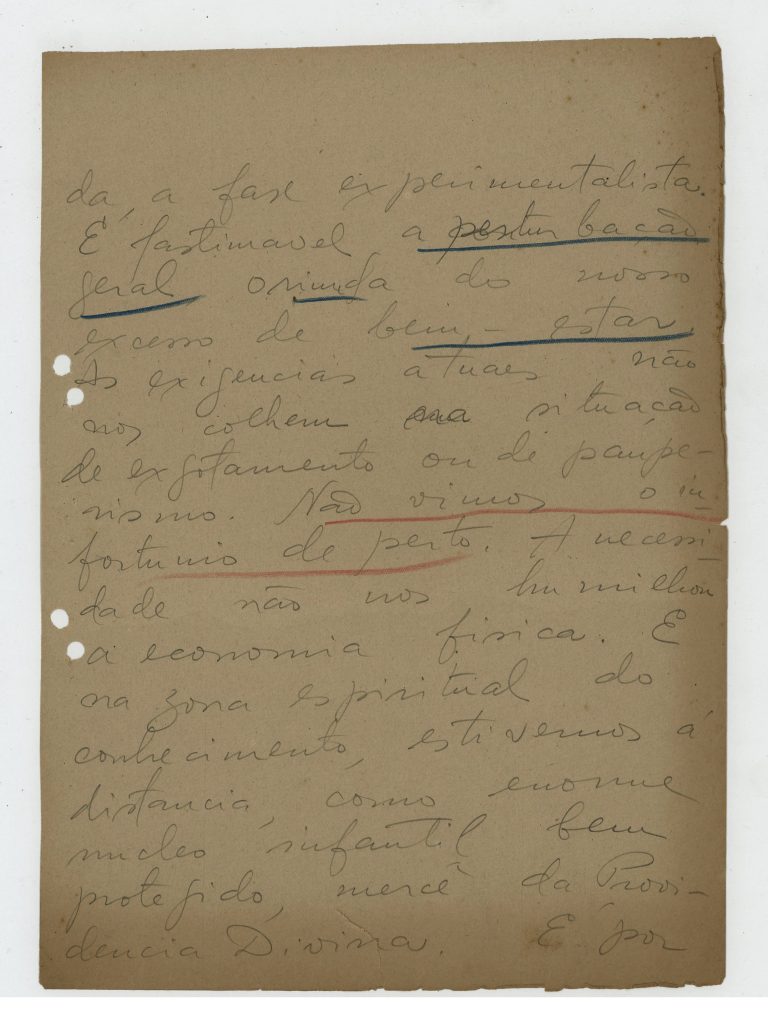 da, a fase experimentalista.
É lastimavel a perturbação
geral oriunda do nosso
excesso de bem-estar.
As exigencias atuaes não
nos colhem na situação
de exgotamento ou de paupe-
rismo. Não vimos o in-
fortunio de perto. A necessi-
dade não nos humilhou
a economia fisica. E
na zona espiritual do
conhecimento, estivemos á
distancia, como enorme
nucleo infantil bem
protegido, mercê da Provi-
dencia Divina. É por